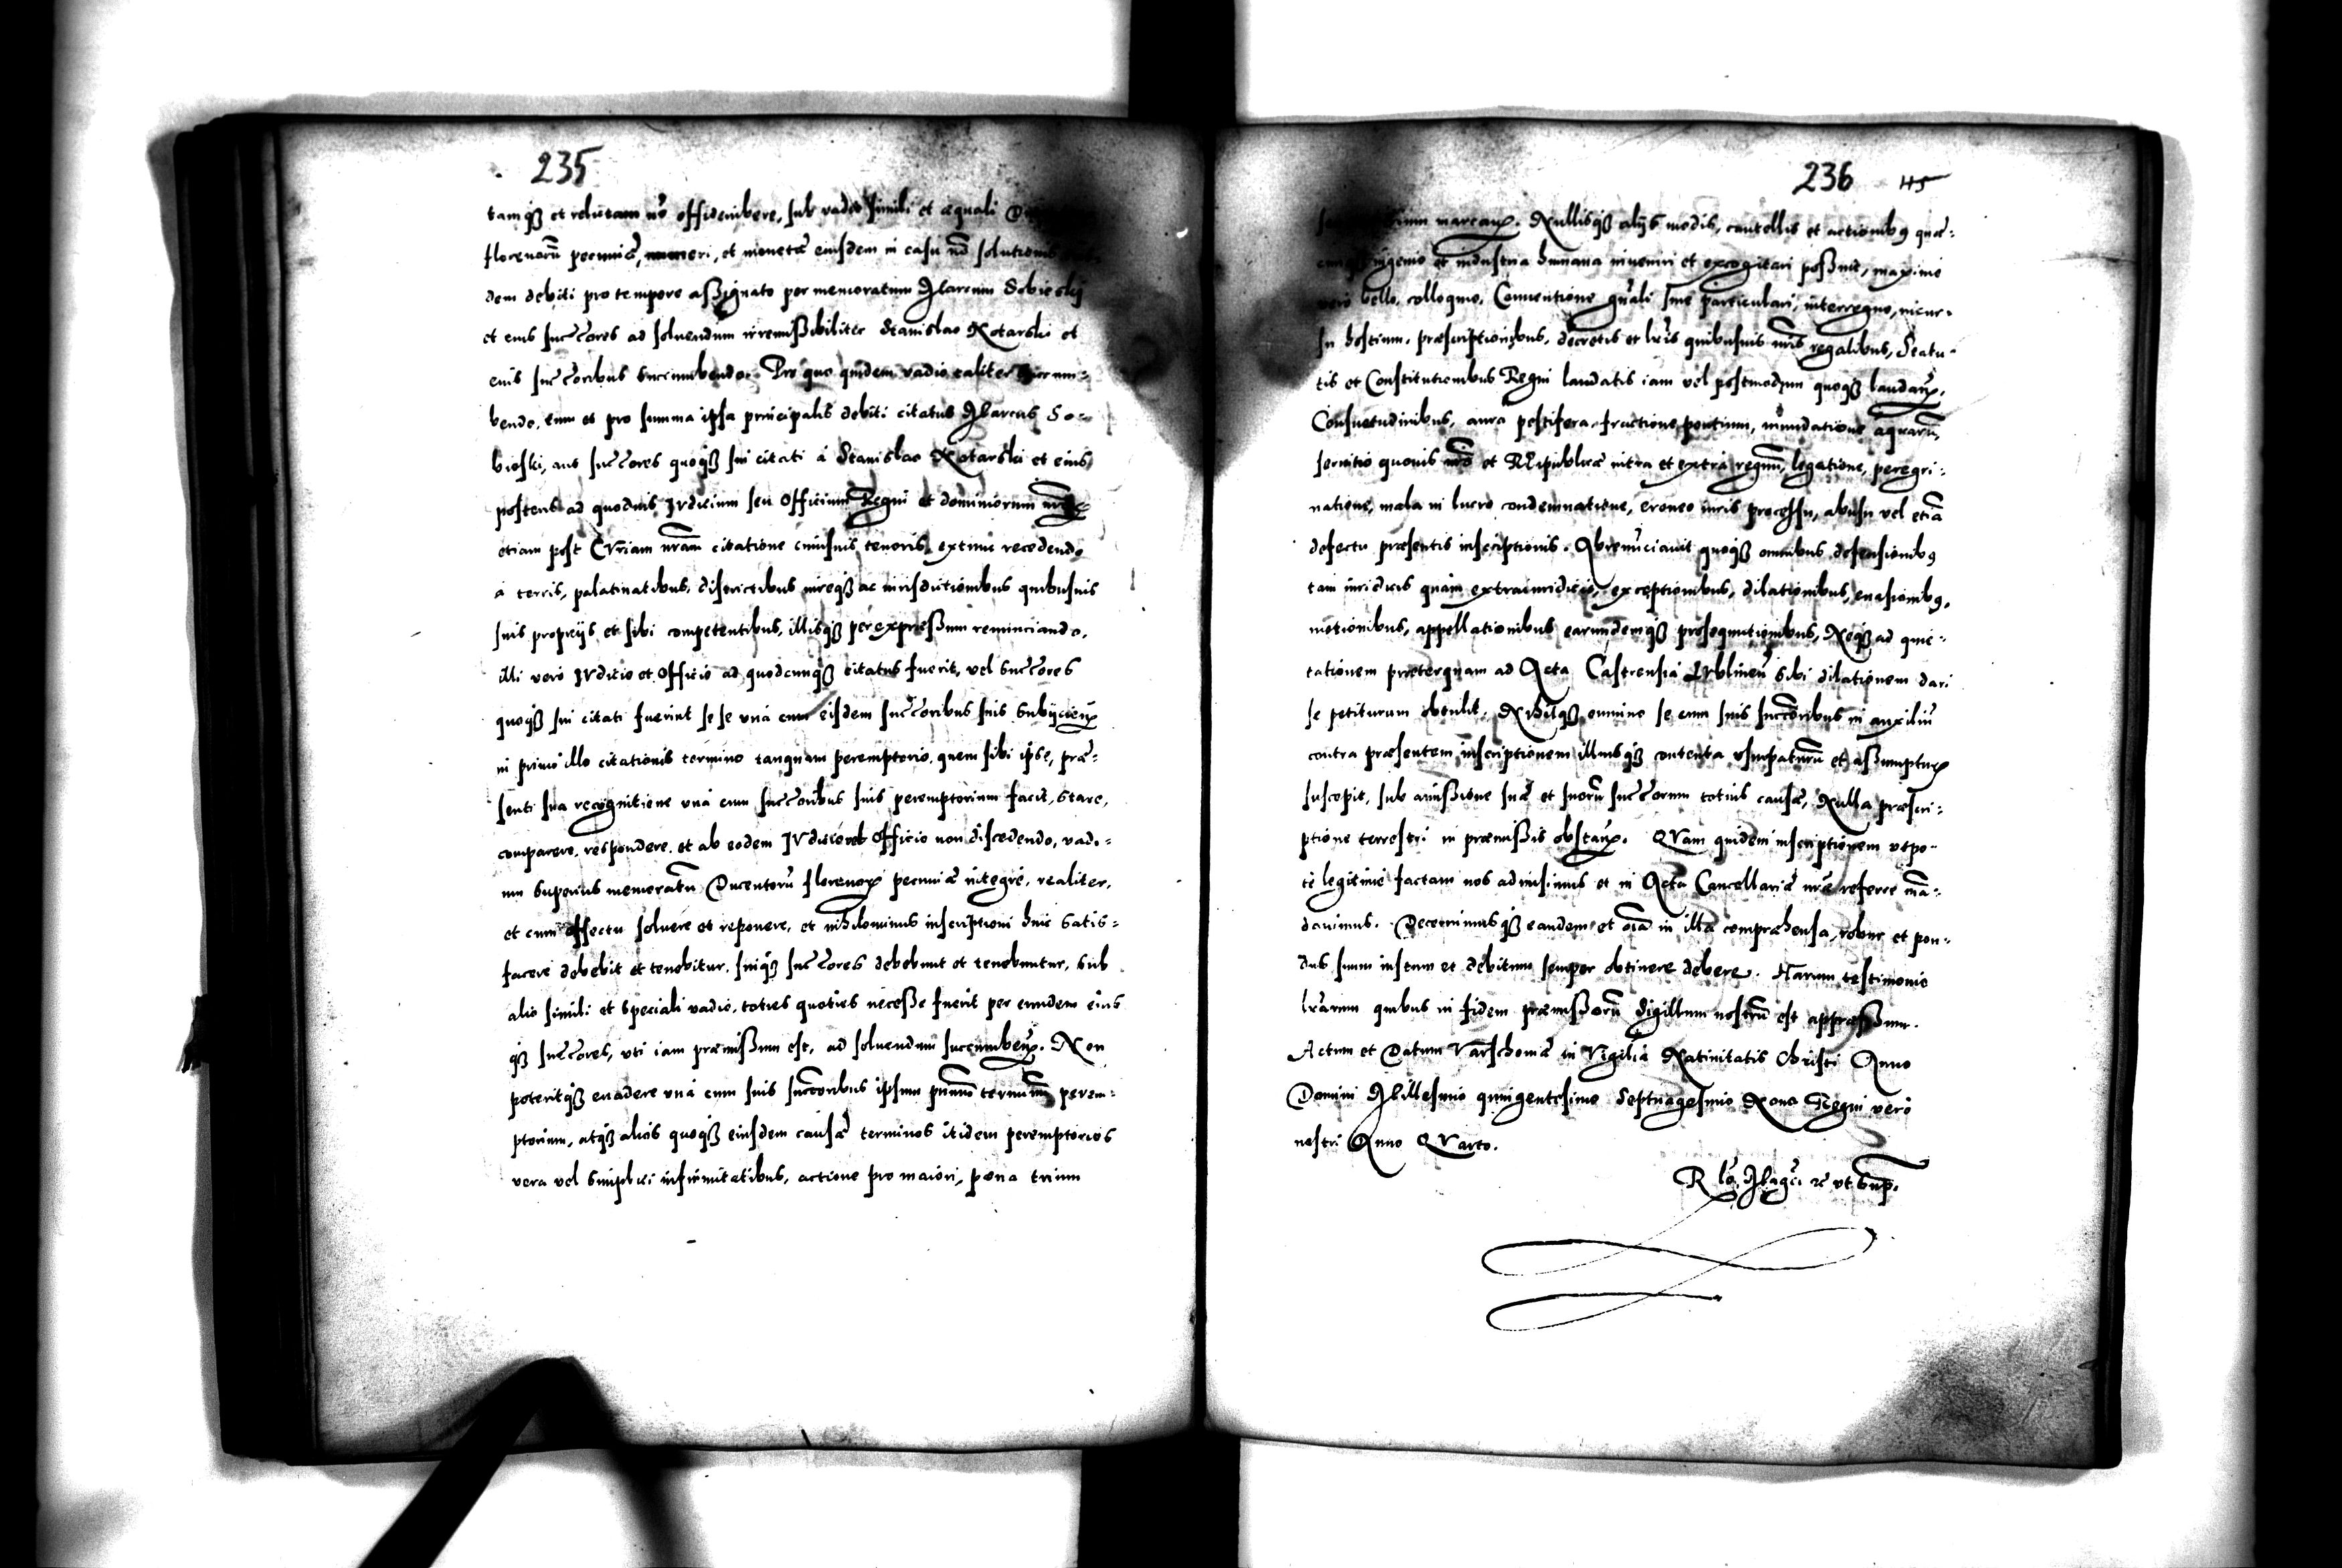 235
tamqß et relutam nõ offidenibere, sub vadio simili et æquali
florenorũ pecuniæ, numeri, et monetæ eiusdem in casu nõ solutionis
dem debiti pro tempore aßignato per memoratum Marcum Sobieskj
et eius succores ad soluendum irremißibiliter Stanislao Notarski et
eius succoribus succumbendo. Pro quo quidem vadio taliter succum=
bendo, cum et pro summa ipsa principalis debiti citatus Marcus So=
bieski, aut succores quoqß sui citati à Stanislao Notarski et eius
posteris ad quoduis Iudicium seu Officium Regni et dominiorum
etiam post CVriam nram citatione cuiusuis tenoris, ex tunc recedendo
à terris, palatinatibus, districtibus iureqß ac iurisdictionibus quibusuis
suis proprijs et sibi competentibus, illisqß per expreßum renunciando,
illi verò IVdicio et Officio ad quodcunqß citatus fuerit, vel succores
quoqß sui citati fuerint se se vnà cum eisdem succoribus suis subijcien
in primo illo citationis termino tanquam peremptorio, quem sibi ipse, præ=
senti sua recognitione vnà cum succoribus suis peremptorium facit, stare,
comparere, respondere, et ab eodem IVdicio vel Officio non discedendo, vadi=
um superius memoratũ Ducentorũ florenor pecuniæ integrè, realiter,
et cum effectu soluere et reponere, et nihilominus inscriptioni huic satis=
facere debebit et tenebitur, suiqß succores debebunt et tenebuntur, sub
alio simili et speciali vadio, toties quoties neceße fuerit per eundem eius
qß succores, vti iam præmißum est, ad soluendum succumben. Non
poteritqß euadere vnà cum suis succoribus ipsum primum terminum perem=
ptorium, atqß alios quoqß eiusdem causæ terminos itidem peremptorios
vera vel simplici infirmitatibus, actione pro maiori, pœna trium
236 115
marcar. Nullisqß alijs modis, cautellis et actionib9 quæ=
ingenio et industria humana inueniri et excogitari poßunt, maximè
verò bello, colloquio, Conuentione gñali siue particulari, interregno, incur=
su hostium, præscriptionibus, decretis et lris quibusuis nris regalibus, Statu=
tis et Constitutionibus Regni laudatis iam vel postmodum quoqß laudan,
Consuetudinibus, aura pestifera, fractione pontium, inundatione aquarũ,
seruitio quouis nro et REipublicæ intra et extra regnum, legatione, peregri=
natione, mala in lucro condemnatione, erroneo iuris proceßu, abusu vel etiã
defectu præsentis inscriptionis. Abrenũciauit quoqß omnibus defensionib9
tam iuridicis quàm extraiuridicis, exceptionibus, dilationibus, euasionib9,
motionibus, appellationibus earundemqß prosequutionibus, Neqß ad quie=
tationem præterquam ad Acta Castrensia LVblineñ sibi dilationem dari
se petiturum obtulit. Nihilqß omnino se cum suis succoribus in auxiliũ
contra præsentem inscriptionem illiusqß contenta vsurpaturũ et aßumptur
suscepit, sub amißione suæ et suorũ succorum totius causæ, Nulla præscri=
ptione terrestri in præmißis obstan. QVam quidem inscriptionem vtpo=
tè legitimè factam nos admisimus et in Acta Cancellariæ nræ referre mã=
dauimus. Decernimusqß eandem et oia in illa compræhensa, robur et pon=
dus suum iustum et debitum semper obtinere debere. Harum testimonio
lrarum quibus in fidem præmißorũ Sigillum nostrũ est appreßum.
Actum et Datum Varschouiæ in Vigilia Natiuitatis Christi Anno
Domini Millesimo quingentesimo Septuagesimo Nono Regni verò
nostri Anno QVarto.
R lõ. Magci rc vt sup.